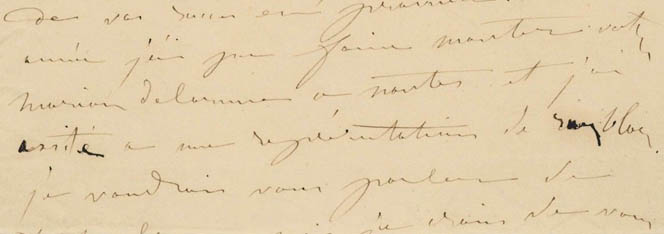 de vos
année j'ai pu faire monter votre
marion delorme a nantes et j'ai
assisté a une représentations de ruy blas
je voudrais vous parler de
je crains de vous